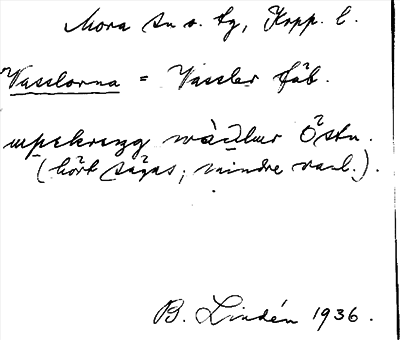 Mora sn o. tg, Kopp. l.
Vasslorna = Vassler fäb.
Östn.
(hört sägas; mindre vanl.).
B. Lindén 1936.